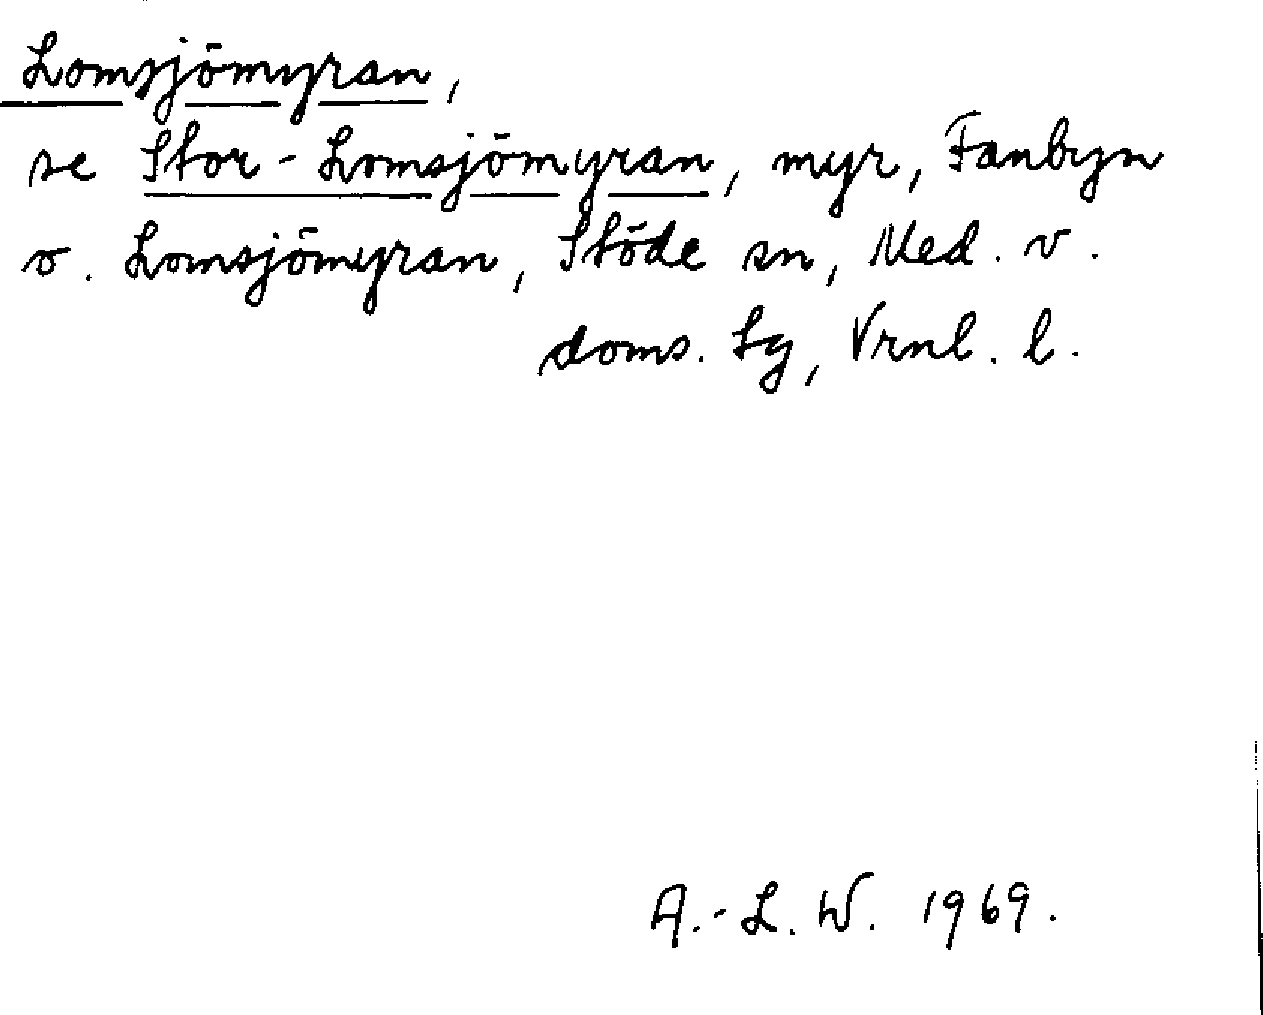 Lomsjömyran,
se Stor-Lomsjömyran, myr, Fanbyn
o. Lomsjömyran, Stöde sn, Med. v.
doms. Lg, Vrnl. l.
A.-L. W. 1969.